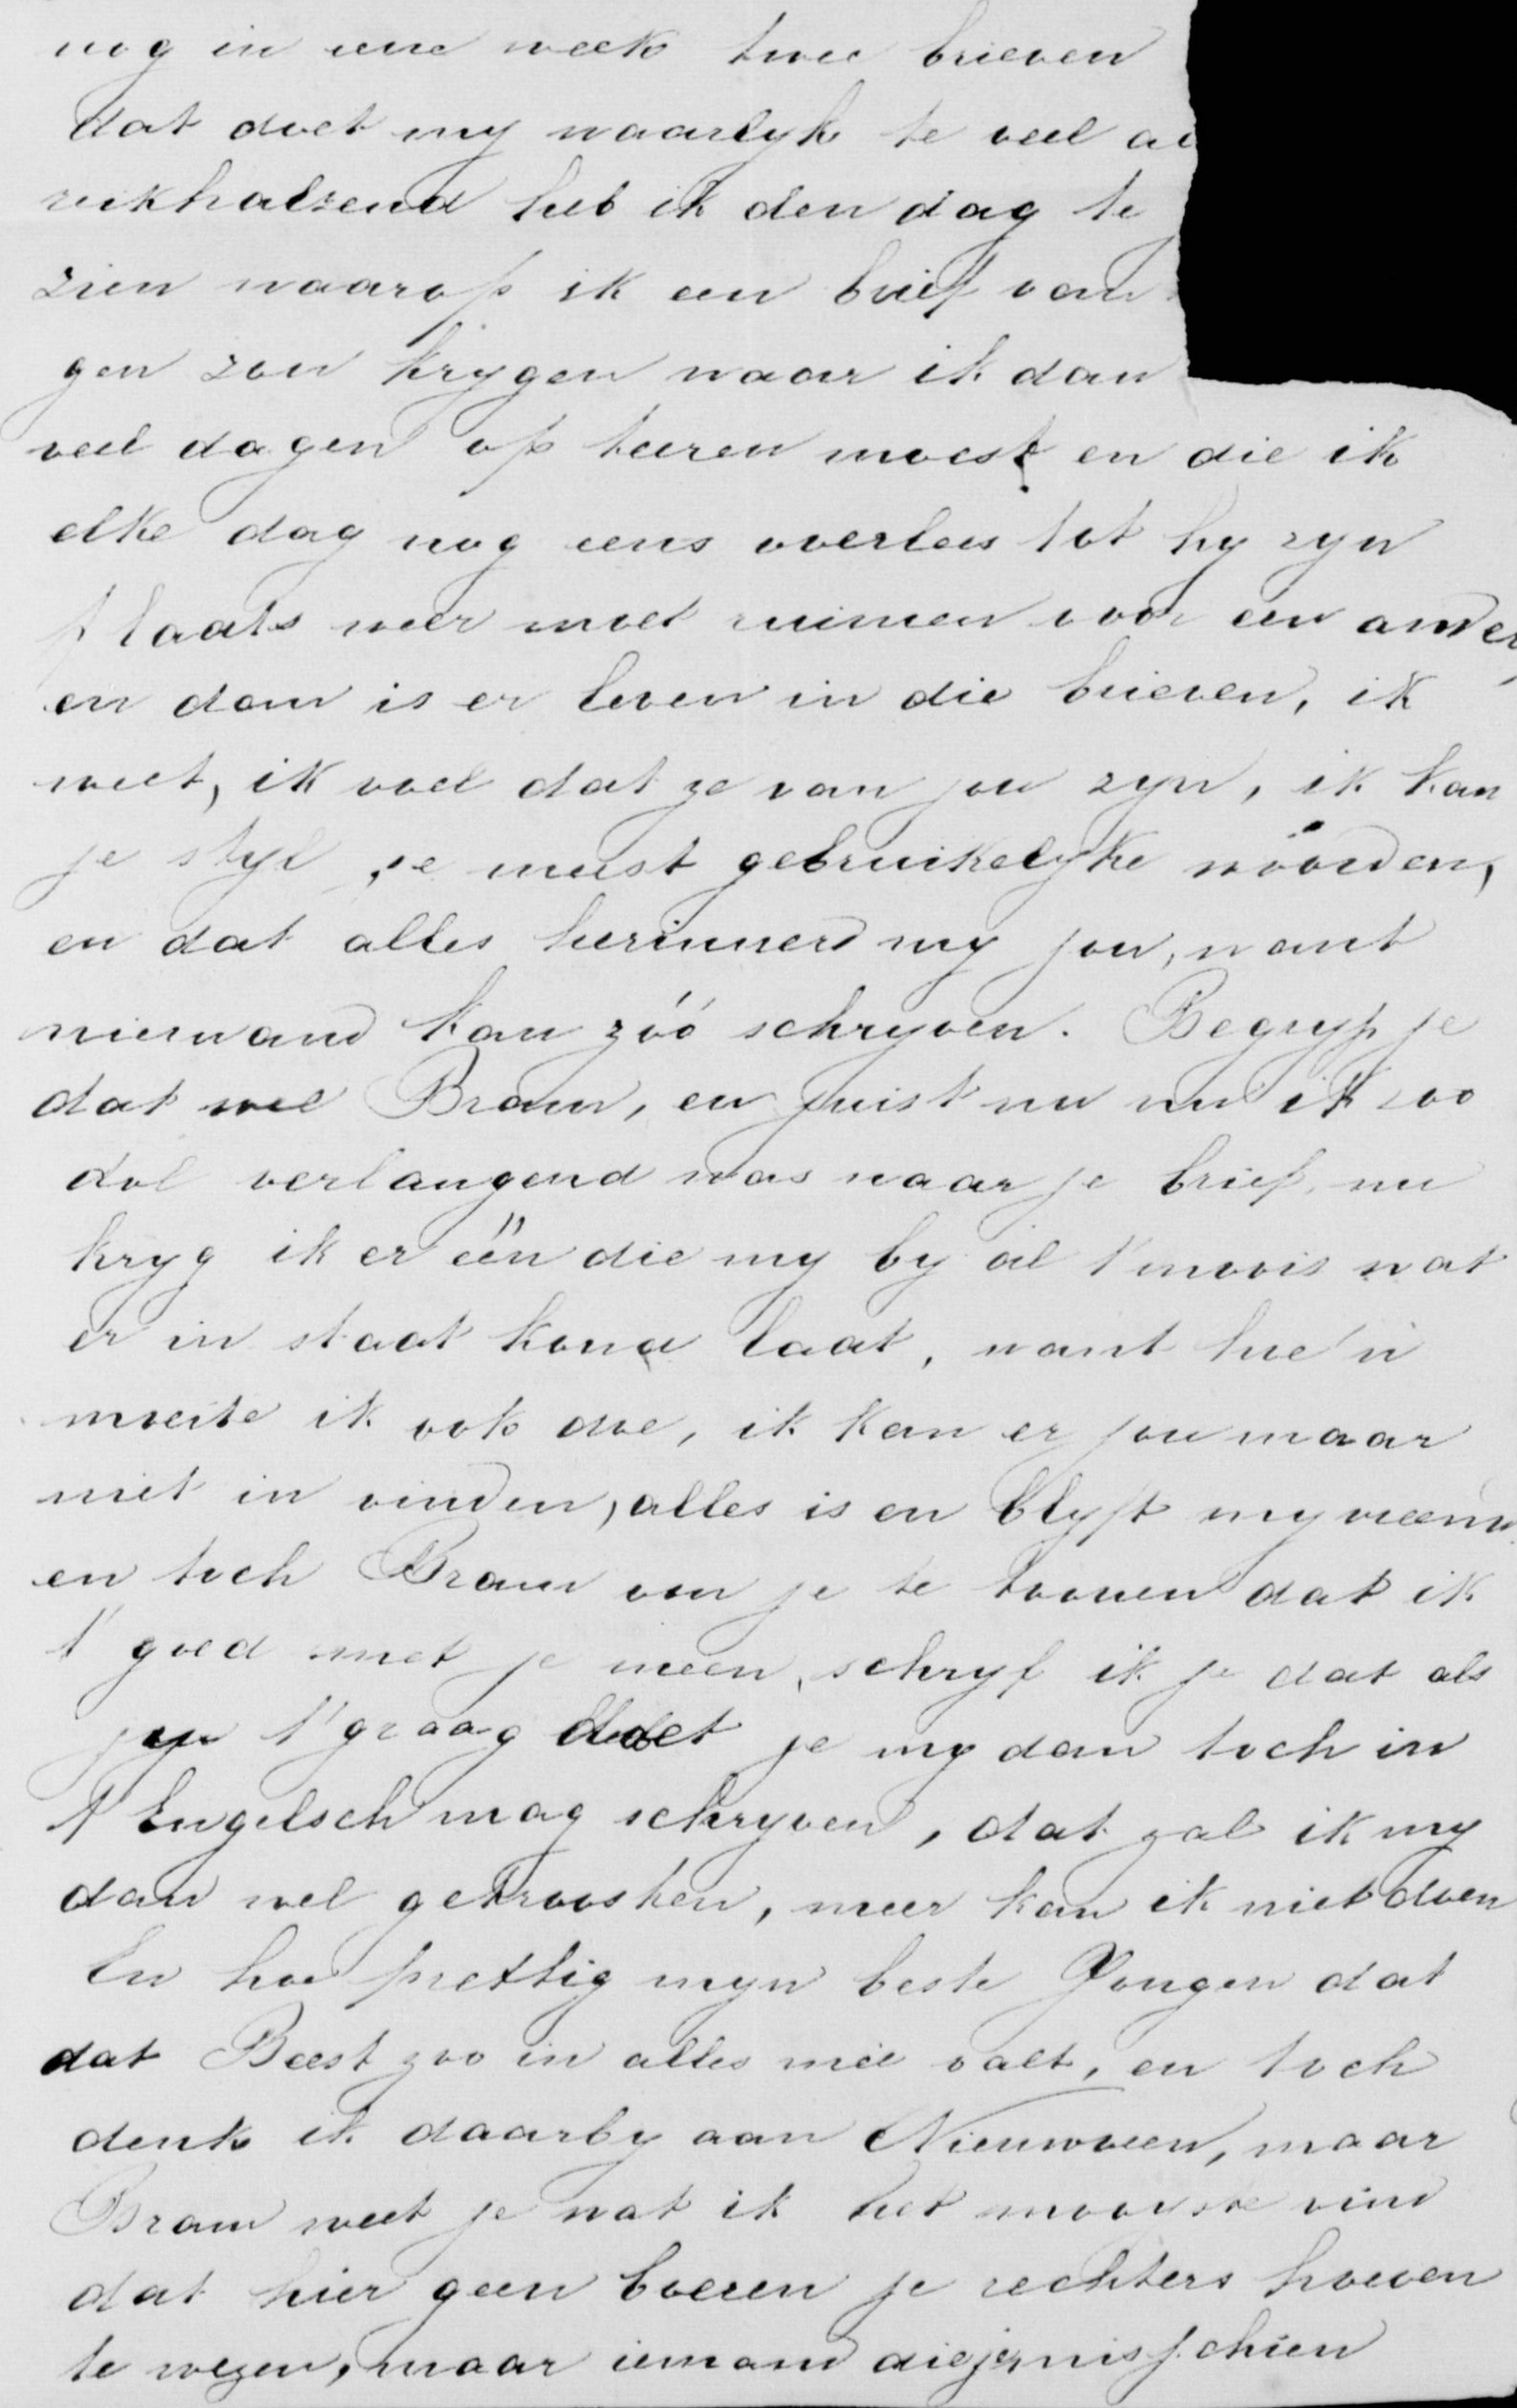 nog in eene week twee brieven
dat doet my waarlyk te veel a
reikhalzend heb ik den dag te
zien waarop ik een brief van
gen zou krygen waar ik dan
veel dagen op teeren moest en die ik
elke dag nog eens overlees tot hy zyn
plaats weer moet ruimen voor een ander
en dan is er leven in die brieven, ik
weet, ik voel dat ze van jou zyn, ik kan
je styl, je meest gebruikelyke woorden,
en dat alles herinnerd my jou, want
niemand kan zóó schryven. Begryp je
dat wel Bram, en juist nu nu ik zoo
dol verlangend was naar je brief, nu
kryg ik er één die my by al t' moois wat
er in staat koud laat, want hoe'n
moeite ik ook doe, ik kan er jou maar
niet in vinden, alles is en blyft my vreemd
en toch Bram om je te toonen dat ik
t' goed met je meen, schryf ik je dat als
jy t' graag doet je my dan toch in
t' Engelsch mag schryven, dat zal ik my
dan wel getroosten, meer kan ik niet doen
En hoe prettig myn beste Jongen dat
dat Beest zoo in alles mee valt, en toch
denk ik daarby aan Nieuwveen, maar
Bram weet je wat ik het mooyste vind
dat hier geen boeren je rechters hoeven
te wezen, maar iemand die je misschien